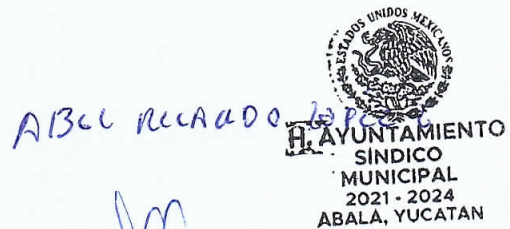 ESTADOS UNIDOS MEXICANOS
ABEL
H. AYUNTAMIENTO
SINDICO
MUNICIPAL
2021 - 2024
ABALÁ, YUCATAN